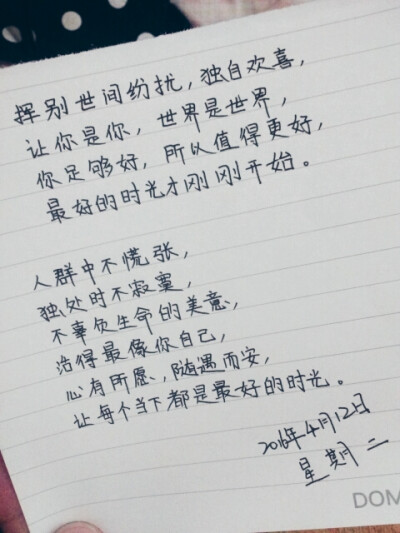 挥别世间纷扰，独自欢喜，
让你是你，世界是世界，
你足够好，所以值得更好，
最好的时光才刚刚开始。
人群中不慌张，
独处时不寂寞，
不辜负生命的美意，
活得最像你自己，
心有所愿，随遇而安，
让每个当下都是最好的时光。
2016年4月12日
星期二
DOM